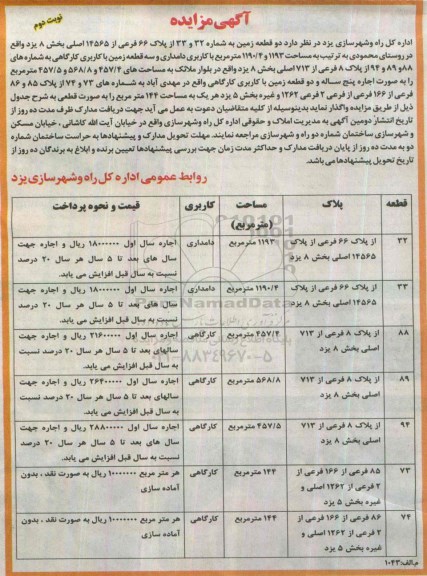 آگهی مزایده
نوبت دوم
اداره کل راه وشهرسازی یزد در نظر دارد دو قطعه زمین به شماره ۳۲ و ۳۳ از پلاک ۶۶ فرعی از ۱۴۵۶۵ اصلی بخش ۸ یزد واقع
در روستای محمودی به ترتیب به مساحت ۱۱۹۳ و ۱۱۹۰/۴ مترمربع با کاربری دامداری و سه قطعه زمین با کاربری کارگاهی به شماره های
۸۸ و ۸۹ و ۹۴ از پلاک ۸ فرعی از ۷۱۳ اصلی بخش ۸ یزد واقع در بلوار ملائک به مساحت های ۴۵۷/۴ و ۵۶۸/۸ و ۴۵۷/۵ مترمربع
را به صورت اجاره پنج ساله و دو قطعه زمین با کاربری کارگاهی واقع در مهدی آباد به شماره های ۷۳ و ۷۴ از پلاک ۸۵ و ۸۶
فرعی از ۱۶۶ فرعی از ۲ فرعی ۱۲۶۲ و غیره بخش ۵ یزد هر یک به مساحت ۱۴۴ متر مربع را به صورت قطعی به شرح جدول
ذیل از طریق مزایده واگذار نماید بدینوسیله از کلیه متقاضیان دعوت به عمل می آید جهت دریافت مدارک ظرف مدت ده روز از
تاریخ انتشار دومین آگهی به مدیریت املاک و حقوقی اداره کل راه وشهرسازی واقع در خیابان آیت الله کاشانی ، خیابان مسکن
و شهرسازی ساختمان شماره دو راه و شهرسازی مراجعه نمایند. مهلت تحویل مدارک و پیشنهادها به حراست ساختمان شماره
دو به مدت ده روز از پایان دریافت مدارک و حداکثر مدت زمان جهت بررسی پیشنهادها تعیین برنده و ابلاغ به برندگان ده روز از
تاریخ تحویل پیشنهادها می باشد.
روابط عمومی اداره کل راه وشهرسازی یزد
قطعه پلاک مساحت (مترمربع) کاربری قیمت و نحوه پرداخت
۳۲ از پلاک ۶۶ فرعی از پلاک ۱۱۹۳ مترمربع دامداری اجاره سال اول ۱۸۰۰۰۰۰۰ ریال و اجاره جهت
۱۴۵۶۵ اصلی بخش ۸ یزد سال های بعد تا ۵ سال هر سال ۲۰ درصد
نسبت به سال قبل افزایش می یابد.
۳۳ از پلاک ۶۶ فرعی از پلاک ۱۱۹۰/۴ مترمربع دامداری اجاره سال اول ۱۸۰۰۰۰۰۰ ریال و اجاره جهت
۱۴۵۶۵ اصلی بخش ۸ یزد سال های بعد تا ۵ سال هر سال ۲۰ درصد
نسبت به سال قبل افزایش می یابد.
۸۸ از پلاک ۸ فرعی از ۷۱۳ ۴۵۷/۴ مترمربع کارگاهی اجاره سال اول ۲۱۶۰۰۰۰۰ ریال و اجاره جهت
اصلی بخش ۸ یزد سالهای بعد تا ۵ سال هر سال ۲۰ درصد نسبت
به سال قبل افزایش می یابد.
۸۹ از پلاک ۸ فرعی از ۷۱۳ ۵۶۸/۸ مترمربع کارگاهی اجاره سال اول ۲۶۴۰۰۰۰۰ ریال و اجاره جهت
اصلی بخش ۸ یزد سالهای بعد تا ۵ سال هر سال ۲۰ درصد نسبت
به سال قبل افزایش می یابد.
۹۴ از پلاک ۸ فرعی از ۷۱۳ ۴۵۷/۵ مترمربع کارگاهی اجاره سال اول ۲۸۸۰۰۰۰۰ ریال و اجاره جهت
اصلی بخش ۸ یزد سال های بعد تا ۵ سال هر سال ۲۰ درصد
نسبت به سال قبل افزایش می یابد.
۷۳ ۸۵ فرعی از ۱۶۶ فرعی از ۱۴۴ مترمربع کارگاهی هر متر مربع ۱۰۰۰۰۰۰۰ ریال به صورت نقد ، بدون
۲ فرعی از ۱۲۶۲ اصلی و آماده سازی
غیره بخش ۵ یزد
۷۴ ۸۶ فرعی از ۱۶۶ فرعی از ۱۴۴ مترمربع کارگاهی هر متر مربع ۱۰۰۰۰۰۰۰ ریال به صورت نقد ، بدون
۲ فرعی از ۱۲۶۲ اصلی و آماده سازی
غیره بخش ۵ یزد
م.الف:۱۰۴۳